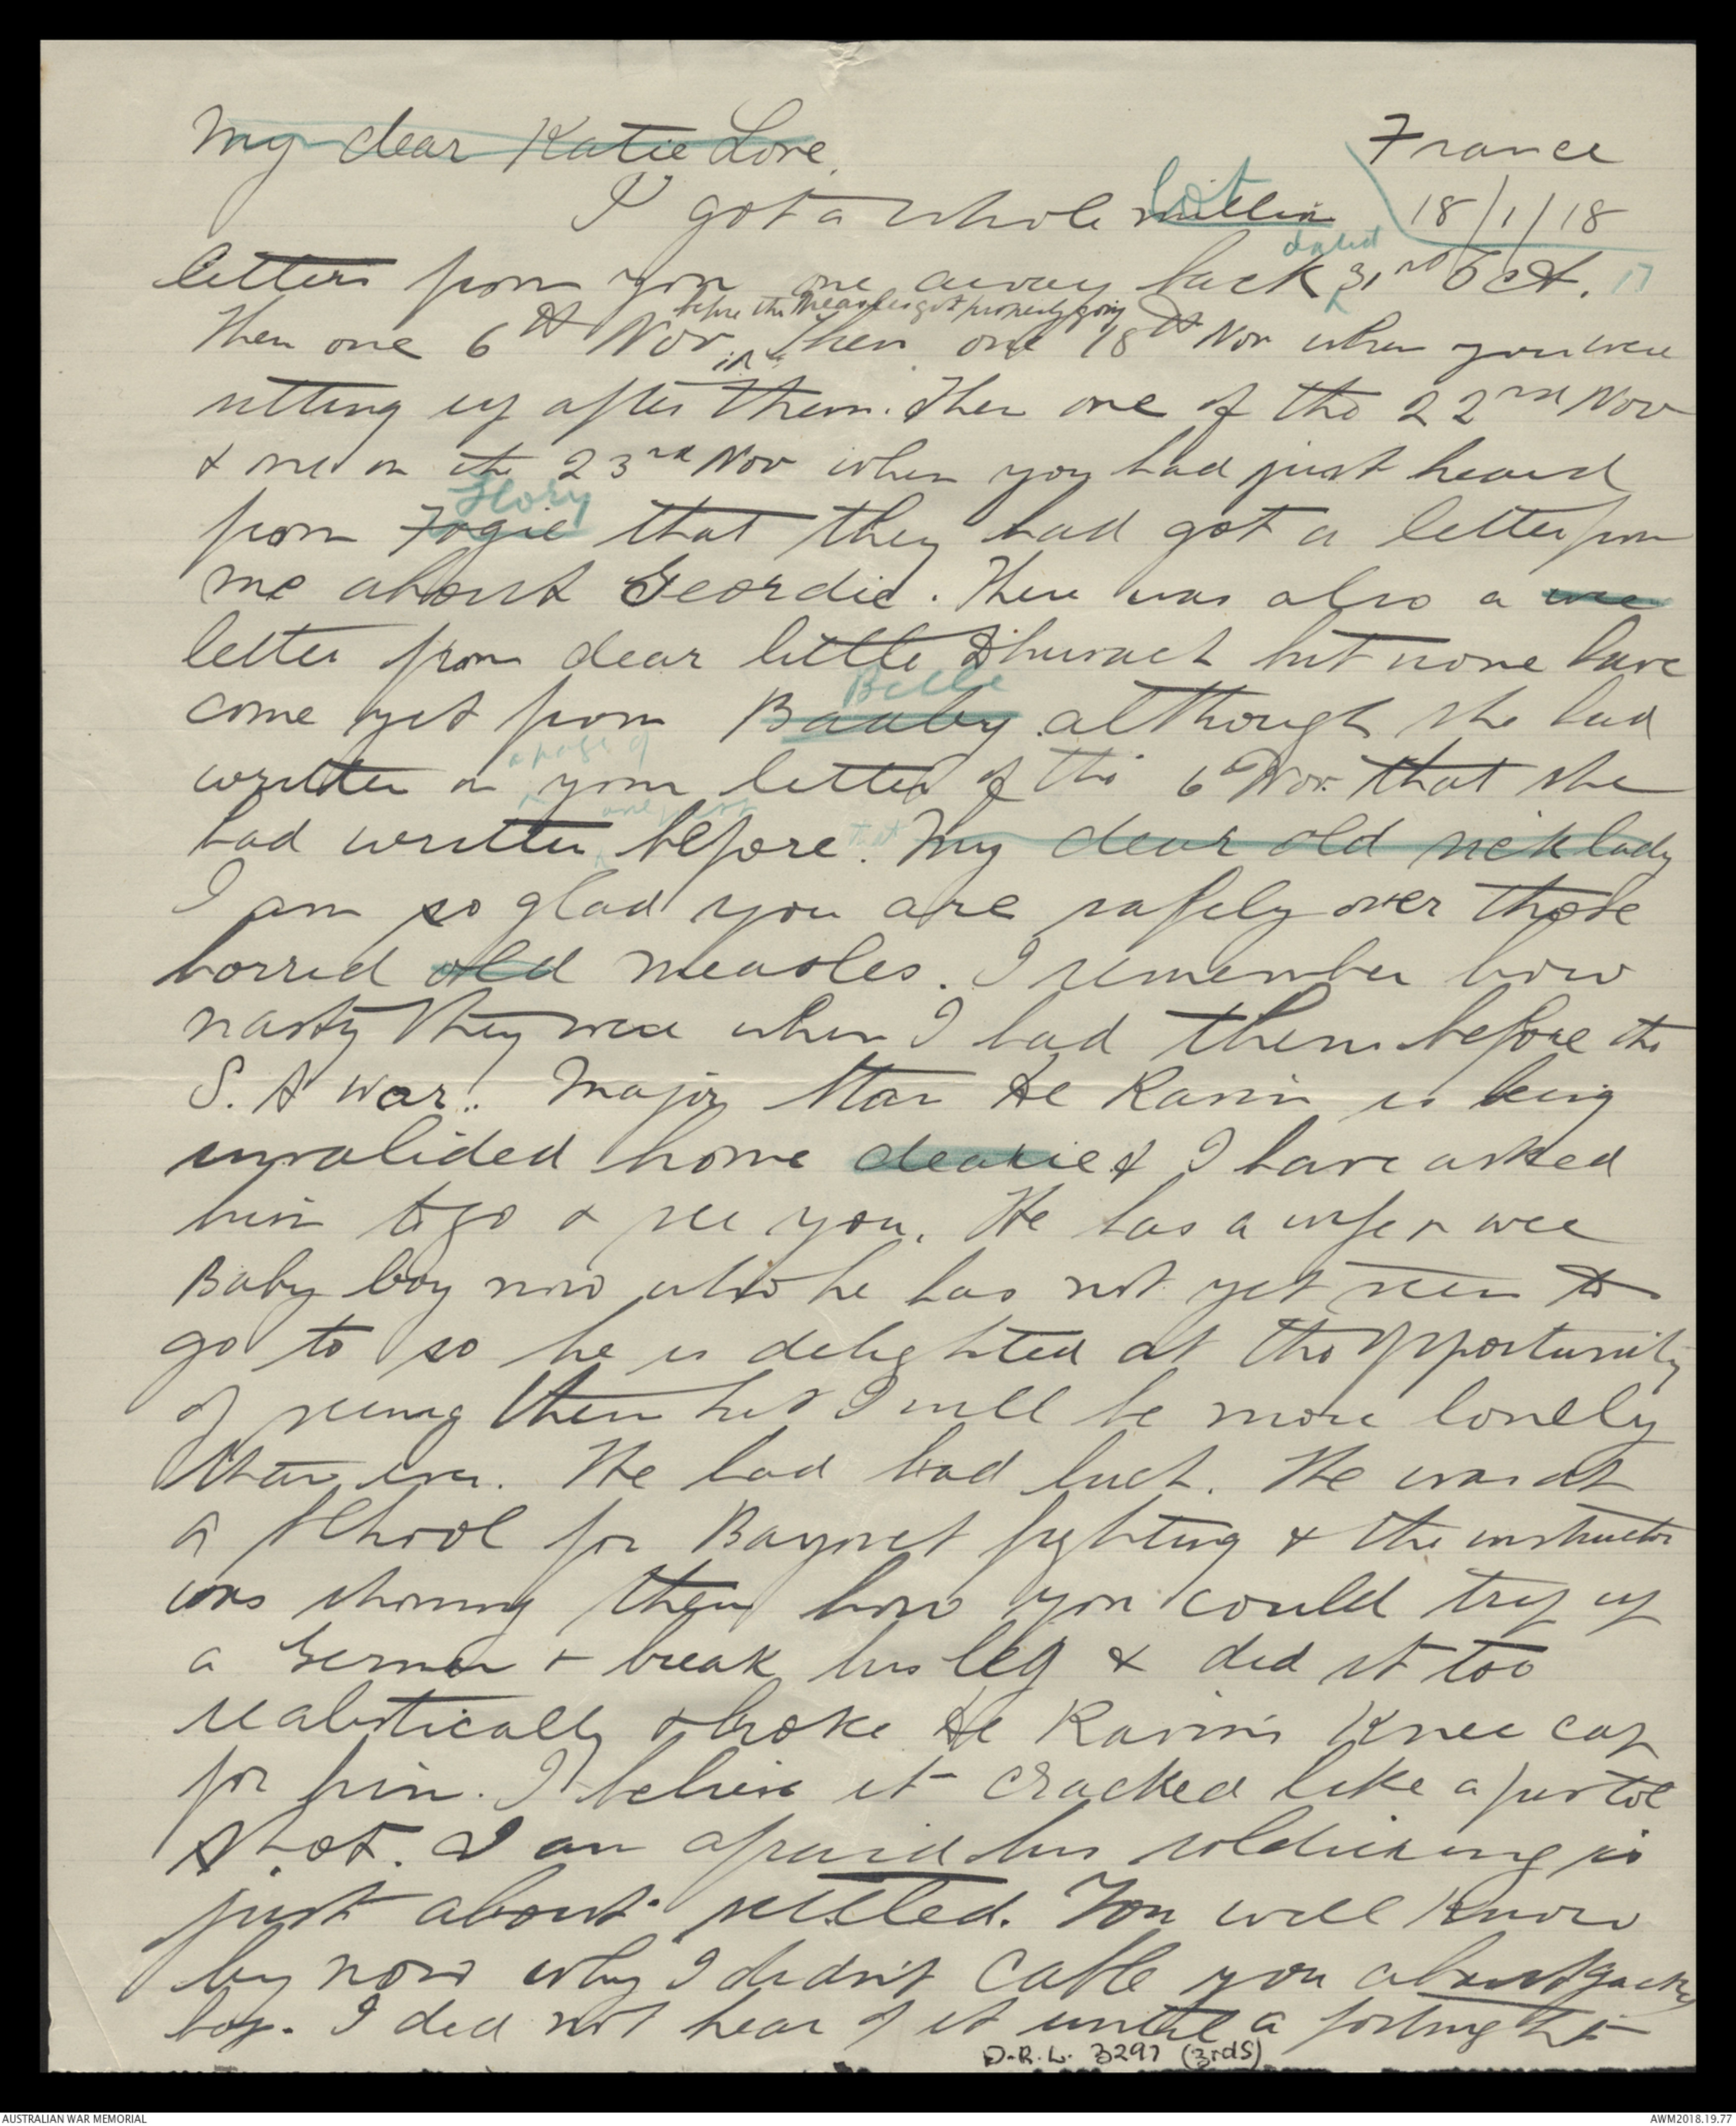 My dear Katie Love, France
I got a whole million lot 18/1/18
letters from you one away back dated 31st Oct. 17
Then one 6th Nov before the measles got properly going in & then one 18th Nov when you were
sitting up after them. Then one of the 22nd Nov
& one on the 23rd Nov when you had just heard
from Fogie Flory that they had got a letter from
me about Geordie. There was also a wee
letter from dear little but none have
come yet from Baaby Belle although she had
written on a page of your letter of the 6th Nov. that she
had written before that. My dear old sick lady
I am so glad you are safely over those
horrid old measles. I remember how
nasty they were when I had them before the
S. A War.. Major Stan De Ravin is being
invalided home dearie & I have asked
him to go & see you. He has a wife & wee
Baby boy now who he has not yet seen to
go to so he is delighted at the opportunity
of seeing them but I will be more lonely
than ever. He had bad luck. He was at
a School for Bayonet fighting & the instructor
was showing them how you could trip up
a German & break his leg & did it too
realistically & broke De Ravin's knee cap
for him. I believe it cracked like a pistol
shot. I am afraid his soldiering is
just about settled. You will know
by now why I didn't cable you about Jacky
boy. I did not hear of it until a fortnight
D.R.L. 3297 (3rdS)
AUSTRALIAN WAR MEMORIAL AWM2018.19.77